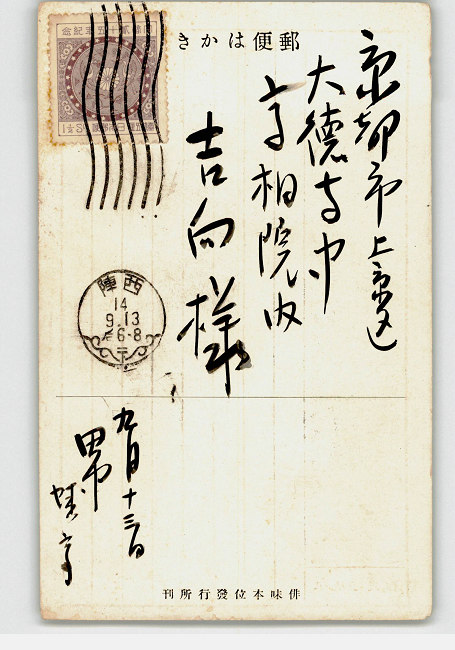 郵便はかき
京都市上京区
大徳寺中
院内
吉向様
西陣
14
9.13
6-8
九月十三日
田中
俳味本位發行所刊